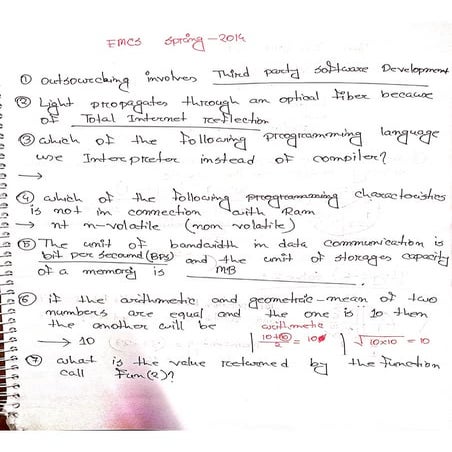 EMCS Spring-2014
① outsourcking involves Third party software Development
② Light propagates through an optical fiber because
of Total Internet reflection
③ which of the following programming language
use Interpreter instead of compiler?
→
④ which of the following programming characteristics
is not in connection with Ram
→ nt n-volatile (non volatile)
⑤ The unit of bandwidth in data communication is
bit per secound (BPS) and the unit of storages capacity
of a memory is MB
⑥ if the arithmetic and geometric-mean of two
numbers are equal and the one is 10 then
the another will be arithmetic
→ 10 10+10/2 = 10 √10×10 = 10
⑦ what is the value returned by the function
call Fun(2)?